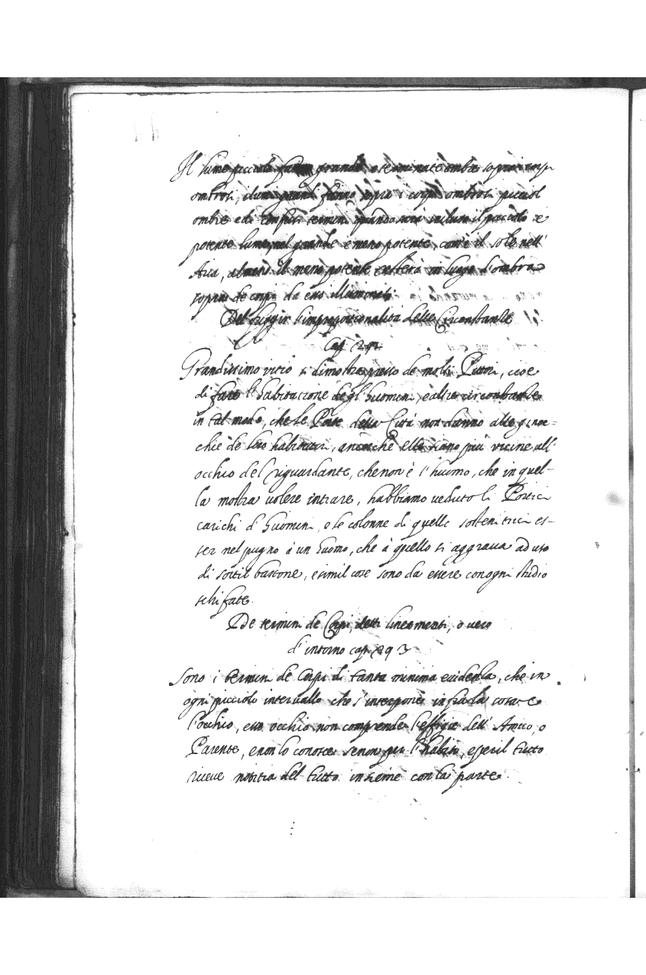 Il lume piccolo fa grande e terminate ombre sopra i corpi
ombrosi, i lumi grandi fanno sopra i corpi ombrosi piccole
ombre e di confusi termini quando sarà incluso il piccolo e
potente lume nel grande e meno potente, com'è il sole nell'
Aria, allhora il meno potente resterà in luogo d'ombra
sopra de corpi da essi illuminati.
Del fuggir l'improportionalità delle Circonstantie
Cap. 292
Grandissimo vitio si dimostra presso de molti Pittori, cioè
di fare l'habitatione degl'huomini, e altre circonstantie
in tal modo, che le Porte delle Città non danno alle ginoc=
chie de loro habitatori, ancorche elle siano più vicine all'
occhio del riguardante, che non è l'huomo, che in quel=
la mostra volere intrare, habbiamo veduto li Portici
carichi d'huomini, e le colonne di quelle sostenitrici es=
ser nel pugno à un huomo, che à quello si aggrava ad uso
di sottil bastone, e simil cose sono da essere con ogni studio
schifate.
De termini de Corpi, detti lineamenti, o vero
d'intorno cap. 293
Sono i termini de Corpi di tanta minima evidentia, che in
ogni piccolo intervallo che s'interpone infra la cosa e
l'occhio, esso occhio non comprende l'effigie dell'Amico, o
Parente, e non lo conosce senon per l'habito, e per il tutto
riceve notitia del tutto insieme con la parte